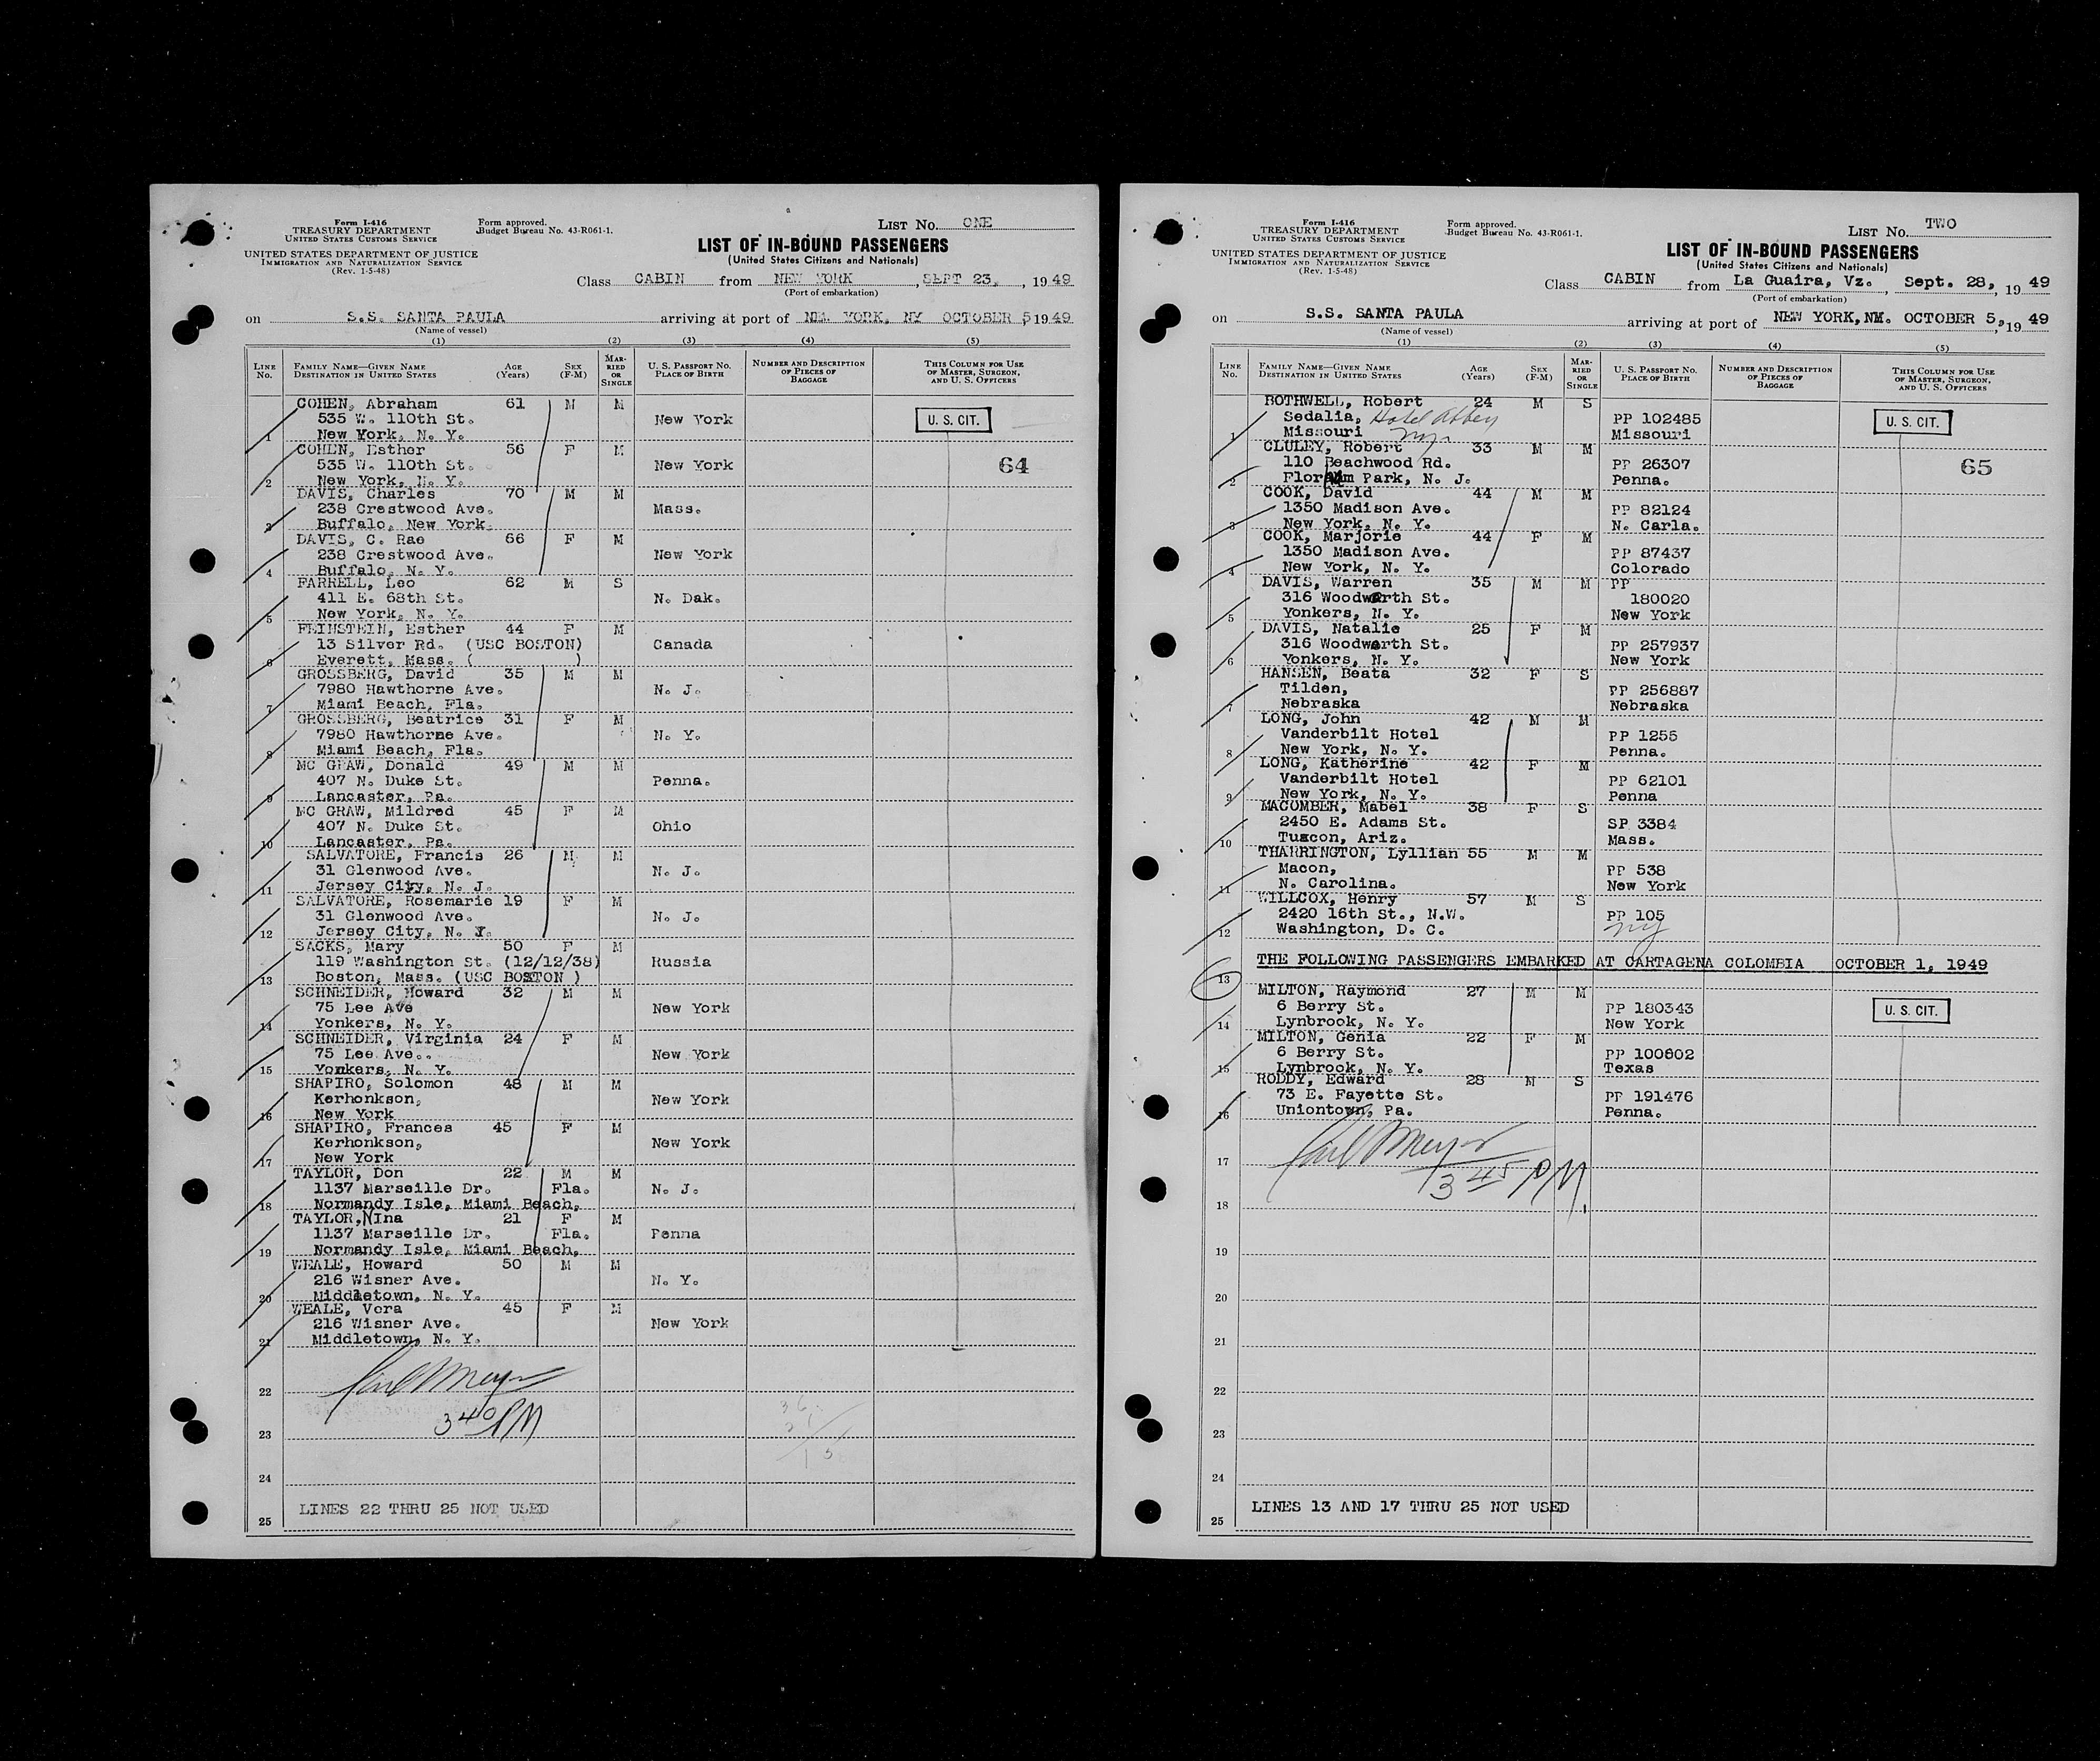 Form I-416
TREASURY DEPARTMENT
UNITED STATES CUSTOMS SERVICE
UNITED STATES DEPARTMENT OF JUSTICE
IMMIGRATION AND NATURALIZATION SERVICE
(Rev. 1-5-48)
Form approved.
Budget Bureau No. 43-R061-1.
LIST No. ONE
LIST OF IN-BOUND PASSENGERS
(United States Citizens and Nationals)
Class CABIN from NEW YORK, SEPT 23, 1949
(Port of embarkation)
on S.S. SANTA PAULA arriving at port of NEW YORK, NY OCTOBER 5 1949
(Name of vessel)
(1) (2) (3) (4) (5)
LINE No. FAMILY NAME—GIVEN NAME DESTINATION IN UNITED STATES AGE (Years) SEX (F-M) MARRIED OR SINGLE U. S. PASSPORT NO. PLACE OF BIRTH NUMBER AND DESCRIPTION OF PIECES OF BAGGAGE THIS COLUMN FOR USE OF MASTER, SURGEON, AND U. S. OFFICERS
COHEN, Abraham 61 M M
535 W. 110th St. New York U. S. CIT.
1 New York, N. Y.
COHEN, Esther 56 F M
535 W. 110th St. New York 64
2 New York, N. Y.
DAVIS, Charles 70 M M
238 Crestwood Ave. Mass.
3 Buffalo, New York.
DAVIS, C. Rae 66 F M
238 Crestwood Ave. New York
4 Buffalo, N. Y.
FARRELL, Leo 62 M S
411 E. 68th St. N. Dak.
5 New York, N. Y.
FEINSTEIN, Esther 44 F M
13 Silver Rd. (USC BOSTON) Canada
6 Everett, Mass. ( )
GROSSBERG, David 35 M M
7980 Hawthorne Ave. N. J.
7 Miami Beach, Fla.
GROSSBERG, Beatrice 31 F M
7980 Hawthorne Ave. N. Y.
8 Miami Beach, Fla.
MC GRAW, Donald 49 M M
407 N. Duke St. Penna.
9 Lancaster, Pa.
MC GRAW, Mildred 45 F M
407 N. Duke St. Ohio
10 Lancaster, Pa.
SALVATORE, Francis 26 M M
31 Glenwood Ave. N. J.
11 Jersey City, N. J.
SALVATORE, Rosemarie 19 F M
31 Glenwood Ave. N. J.
12 Jersey City, N. J.
SACKS, Mary 50 F M
119 Washington St. (12/12/38) Russia
13 Boston, Mass. (USC BOSTON )
SCHNEIDER, Howard 32 M M
75 Lee Ave New York
14 Yonkers, N. Y.
SCHNEIDER, Virginia 24 F M
75 Lee Ave.. New York
15 Yonkers, N. Y.
SHAPIRO, Solomon 48 M M
Kerhonkson, New York
16 New York
SHAPIRO, Frances 45 F M
Kerhonkson, New York
17 New York
TAYLOR, Don 22 M M
1137 Marseille Dr. Fla. N. J.
18 Normandy Isle, Miami Beach,
TAYLOR, Nina 21 F M
1137 Marseille Dr. Fla. Penna
19 Normandy Isle, Miami Beach,
WEALE, Howard 50 M M
216 Wisner Ave. N. Y.
20 Middletown, N. Y.
WEALE, Vera 45 F M
216 Wisner Ave. New York
21 Middletown, N. Y.
22
3 40 PM
23
24
LINES 22 THRU 25 NOT USED
25
Form I-416
TREASURY DEPARTMENT
UNITED STATES CUSTOMS SERVICE
UNITED STATES DEPARTMENT OF JUSTICE
IMMIGRATION AND NATURALIZATION SERVICE
(Rev. 1-5-48)
Form approved.
Budget Bureau No. 43-R061-1.
LIST No. TWO
LIST OF IN-BOUND PASSENGERS
(United States Citizens and Nationals)
Class CABIN from La Guaira, Vz., Sept. 28, 1949
(Port of embarkation)
on S.S. SANTA PAULA arriving at port of NEW YORK, NY. OCTOBER 5, 1949
(Name of vessel)
(1) (2) (3) (4) (5)
LINE No. FAMILY NAME—GIVEN NAME DESTINATION IN UNITED STATES AGE (Years) SEX (F-M) MARRIED OR SINGLE U. S. PASSPORT NO. PLACE OF BIRTH NUMBER AND DESCRIPTION OF PIECES OF BAGGAGE THIS COLUMN FOR USE OF MASTER, SURGEON, AND U. S. OFFICERS
BOTHWELL, Robert 24 M S
Sedalia, Hotel Abbey PP 102485 U. S. CIT.
1 Missouri Missouri
CLULEY, Robert 33 M M
110 Beachwood Rd. PP 26307 65
2 Florham Park, N. J. Penna.
COOK, David 44 M M
1350 Madison Ave. PP 82124
3 New York, N. Y. N. Carla.
COOK, Marjorie 44 F M
1350 Madison Ave. PP 87437
4 New York, N. Y. Colorado
DAVIS, Warren 35 M M PP
316 Woodworth St. 180020
5 Yonkers, N. Y. New York
DAVIS, Natalie 25 F M
316 Woodworth St. PP 257937
6 Yonkers, N. Y. New York
HANSEN, Beata 32 F S
Tilden, PP 256887
7 Nebraska Nebraska
LONG, John 42 M M
Vanderbilt Hotel PP 1255
8 New York, N. Y. Penna.
LONG, Katherine 42 F M
Vanderbilt Hotel PP 62101
9 New York, N. Y. Penna
MACOMBER, Mabel 38 F S
2450 E. Adams St. SP 3384
10 Tuscon, Ariz. Mass.
THARRINGTON, Lyllian 55 M M
Macon, PP 538
11 N. Carolina. New York
WILLCOX, Henry 57 M S
2420 16th St., N.W. PP 105
12 Washington, D. C. NY
THE FOLLOWING PASSENGERS EMBARKED AT CARTAGENA COLOMBIA OCTOBER 1, 1949
13
MILTON, Raymond 27 M M
6 Berry St. PP 180343 U. S. CIT.
14 Lynbrook, N. Y. New York
MILTON, Genia 22 F M
6 Berry St. PP 100602
15 Lynbrook, N. Y. Texas
RODDY, Edward 28 M S
73 E. Fayette St. PP 191476
16 Uniontown, Pa. Penna.
17
3 45 PM
18
19
20
21
22
23
24
LINES 13 AND 17 THRU 25 NOT USED
25